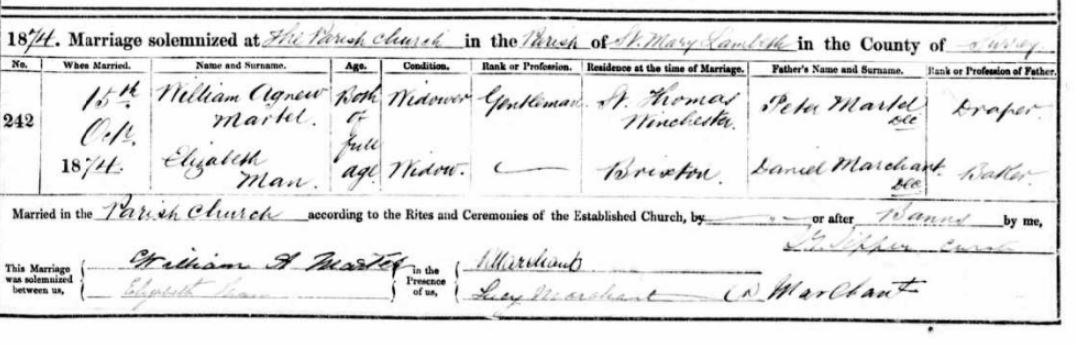 1874. Marriage solemnized at The Parish Church in the Parish of St. Mary Lambeth in the County of Surrey
No. When Married. Name and Surname. Age. Condition. Rank or Profession. Residence at the time of Marriage. Father's Name and Surname. Rank or Profession of Father.
242
15th Oct. 1874.
William Agnew Martel.
Both of full age
Widower
Gentleman
St. Thomas Winchester.
Peter Martel Dec
Draper.
Elizabeth Man.
Widow.
Brixton.
Daniel Marchant. Dec.
Baker.
Married in the Parish Church according to the Rites and Ceremonies of the Established Church, by or after Banns by me,
Curate
This Marriage was solemnized between us,
William A Martel
Elizabeth Man
in the Presence of us,
Marchant
Lucy Marchant
Marchant